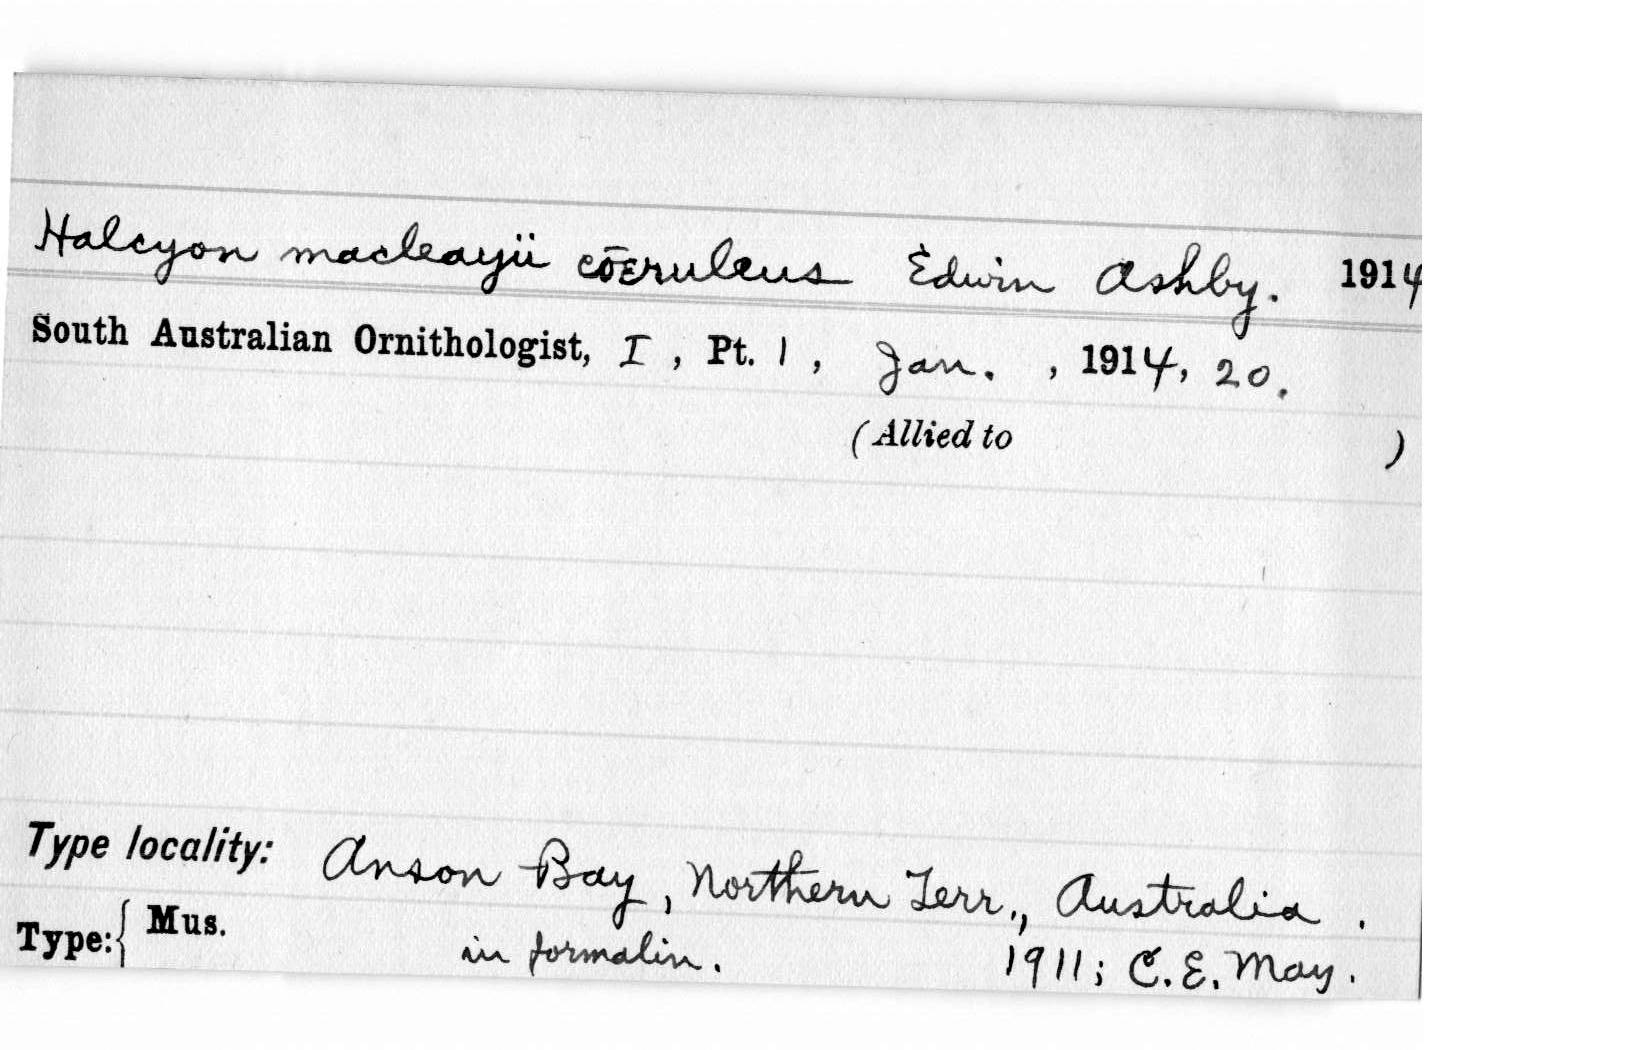 Halcyon macleayii cœruleus Edwin Ashby. 1914
South Australian Ornithologist, I, Pt. 1, Jan. , 1914, 20.
(Allied to )
Type locality: Anson Bay, Northern Terr., Australia.
Type:{ Mus. in formalin. 1911; C.E. May.